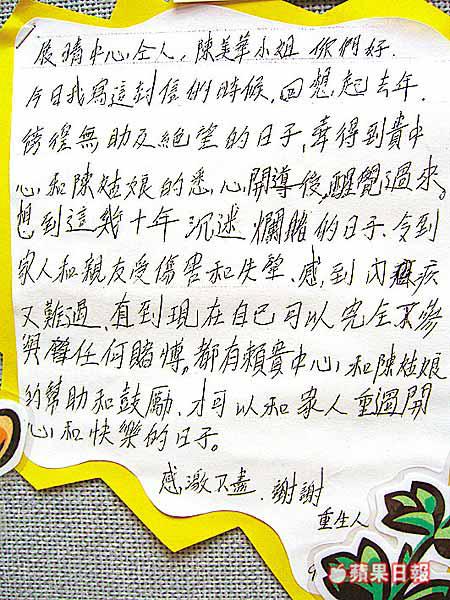 展晴中心仝人，陳美華小姐 你們好.
今日我寫這封信的時候，回想起去年.
徬徨無助及絕望的日子，幸得到貴中
心和陳姑娘的悉心開導後，醒覺過來。
想到這幾十年 沉迷爛賭的日子、令到
家人和親友受傷害和失望、感到內疚
又難過、直到現在自己可以完全不參
與任何賭博。都有賴貴中心和陳姑娘
的幫助和鼓勵、才可以和家人重過開
心和快樂的日子。
感激不盡.謝謝
重生人
9
蘋果日報